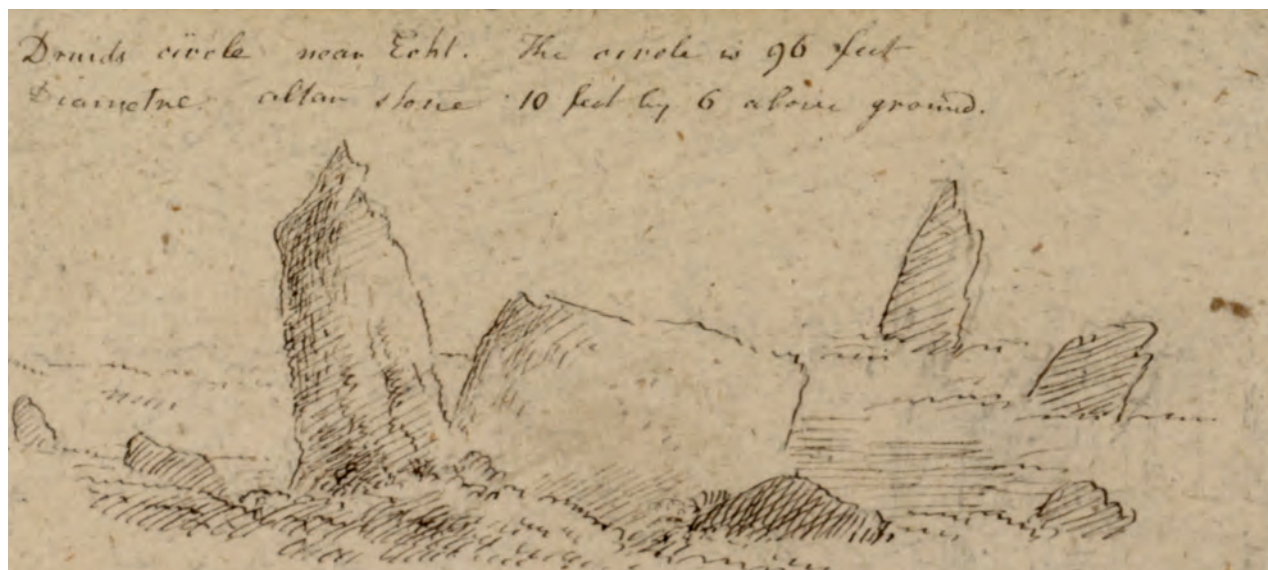 Druids circle near Echt. The circle is 96 feet
Diametre. altar stone 10 feet by 6 above ground.